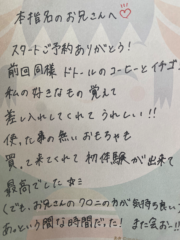 本指名のお兄さんへ♡
スタートご予約ありがとう!
前回同様 ドトールのコーヒーとイチゴ、
私の好きなもの 覚えて
差し入れしてくれて うれしい!!
使った事の無い おもちゃも
買って来てくれて 初体験が出来て
最高でした☆ミ
(でも、お兄さんのクロニの方が気持ち良い
あっという間な時間だった! また会お!!